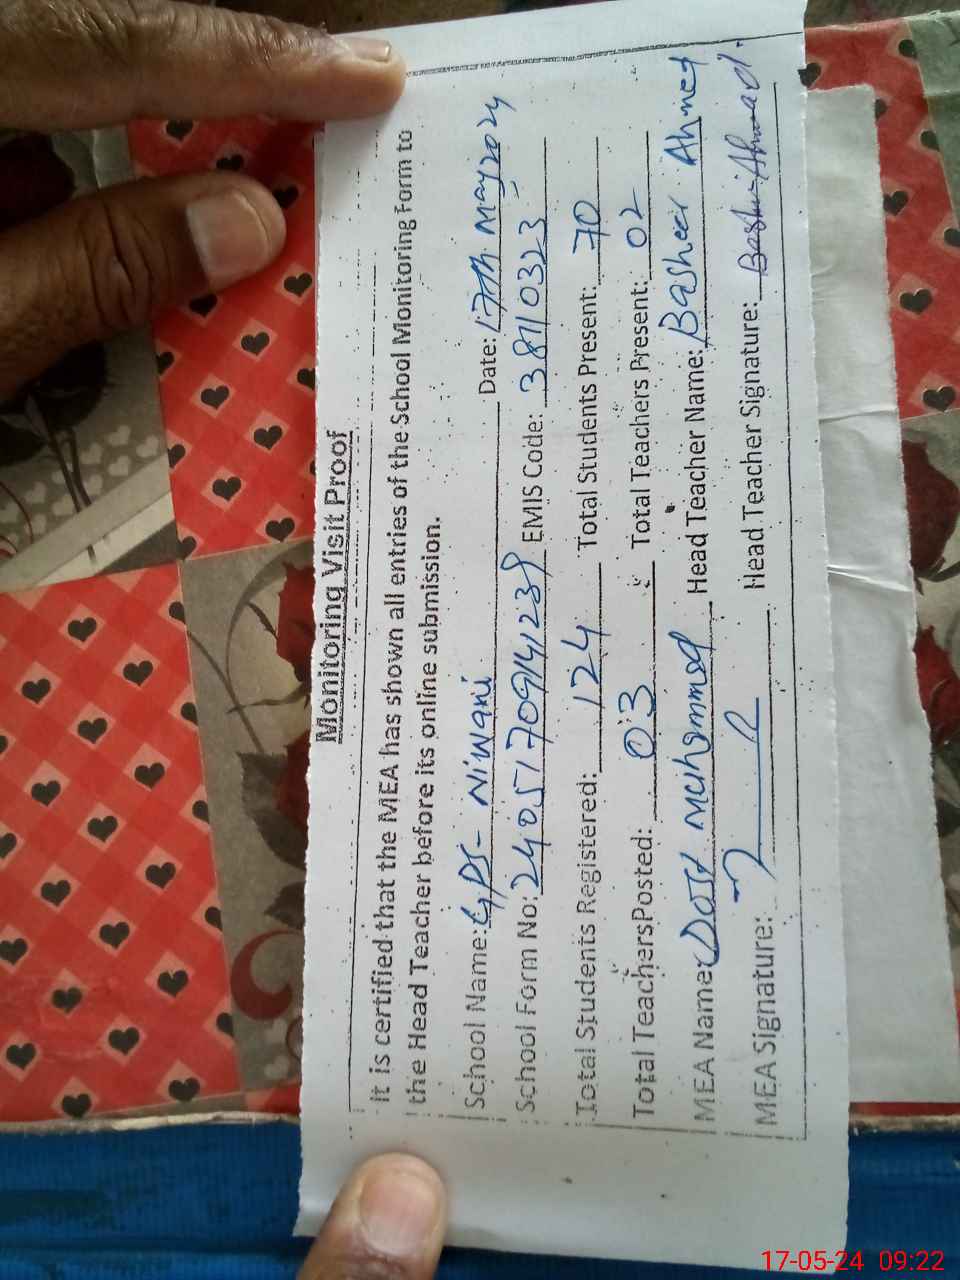 Monitoring Visit Proof
It is certified that the MEA has shown all entries of the School Monitoring Form to
the Head Teacher before its online submission.
School Name: GPS- Niwani Date: 17th May 2024
School Form No: 24051709141239 EMIS Code: 3811 0323
Total Students Registered: 124 Total Students Present: 70
Total Teachers Posted: 03 Total Teachers Present: 02
MEA Name: Dost Mohammad Head Teacher Name: Basheer Ahmed
MEA Signature: Head Teacher Signature: Bashir Ahmad
17-05-24 09:22